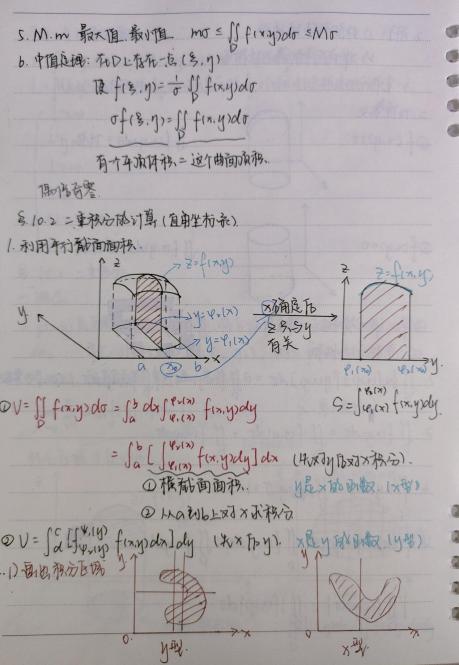 5. M.m 最大值.最小值. mσ ≤ ∬_D f(x,y)dσ ≤ Mσ
6. 中值定理: 在D上存在一点(ξ,η)
使 f(ξ,η)=1/σ ∬_D f(x,y)dσ
σf(ξ,η)=∬_D f(x,y)dσ
有一个平顶体积=这个曲面顶积.
§10.2 二重积分的计算(直角坐标系)
1. 利用平行截面面积.
z
z=f(x,y)
y
y=φ₂(x)
y=φ₁(x)
a x₀ b x
x确定后
z只与y
有关
z
z=f(x,y)
φ₁(x₀) φ₂(x₀) y
① V=∬_D f(x,y)dσ=∫_a^b dx∫_{φ₁(x)}^{φ₂(x)} f(x,y)dy
S=∫_{φ₁(x)}^{φ₂(x)} f(x,y)dy.
=∫_a^b [∫_{φ₁(x)}^{φ₂(x)} f(x,y)dy]dx (先对y后对x积分).
① 横截面面积. y是x的函数.(x型)
② 从a到b上对x求积分
② V=∫_d^c [∫_{ψ₁(y)}^{ψ₂(y)} f(x,y)dx]dy (先x后y). x是y的函数(y型).
1) 画出积分区域
y
0 x
y型.
y
0 x
x型.